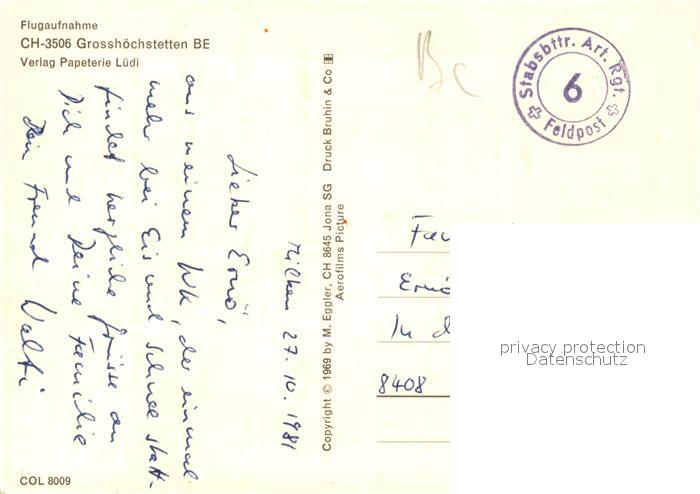 Flugaufnahme
CH-3506 Grosshöchstetten BE
Verlag Papeterie Lüdi
Stabsbttr. Art. Rgt.
6
Feldpost
27. 10. 1981
Lieber Ernö,
aus meinem WK, der einmal
mehr bei Eis und Schnee statt-
findet herzliche Grüsse an
Dich und Deine Familie
Dein Freund Walti
Copyright © 1969 by M. Eggler, CH 8645 Jona SG Druck Bruhin & Co
Aerofilms Picture
Fam
Ernö
In d
8408
privacy protection
Datenschutz
COL 8009